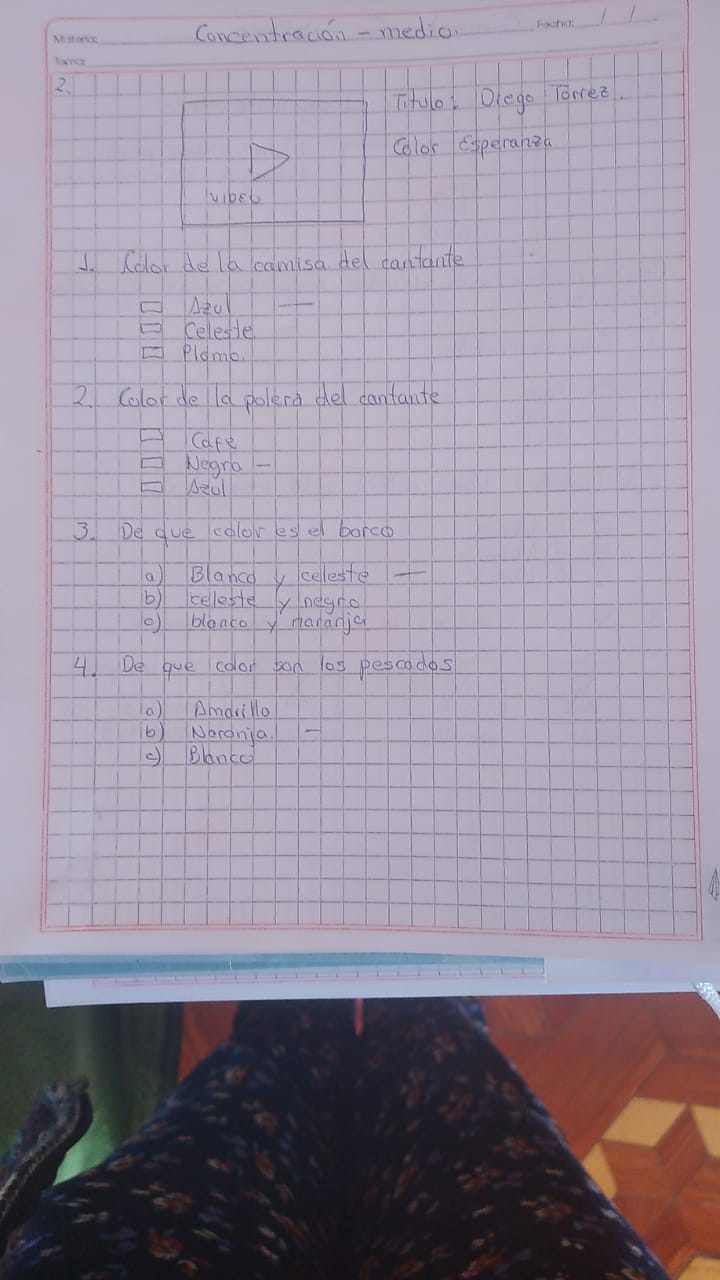 Materia:
Concentración - medio.
Fecha: / /
Tema:
2.
Titulo: Diego Torrez.
Color Esperanza
VIDEO
1. Color de la camisa del cantante
Azul —
Celeste
Plomo.
2. Color de la polera del cantante
Cafe
Negra —
Azul
3. De que color es el barco
a) Blanco y celeste —
b) celeste y negro
c) blanco y naranja
4. De que color son los pescados
a) Amarillo
b) Naranja. —
c) Blanco